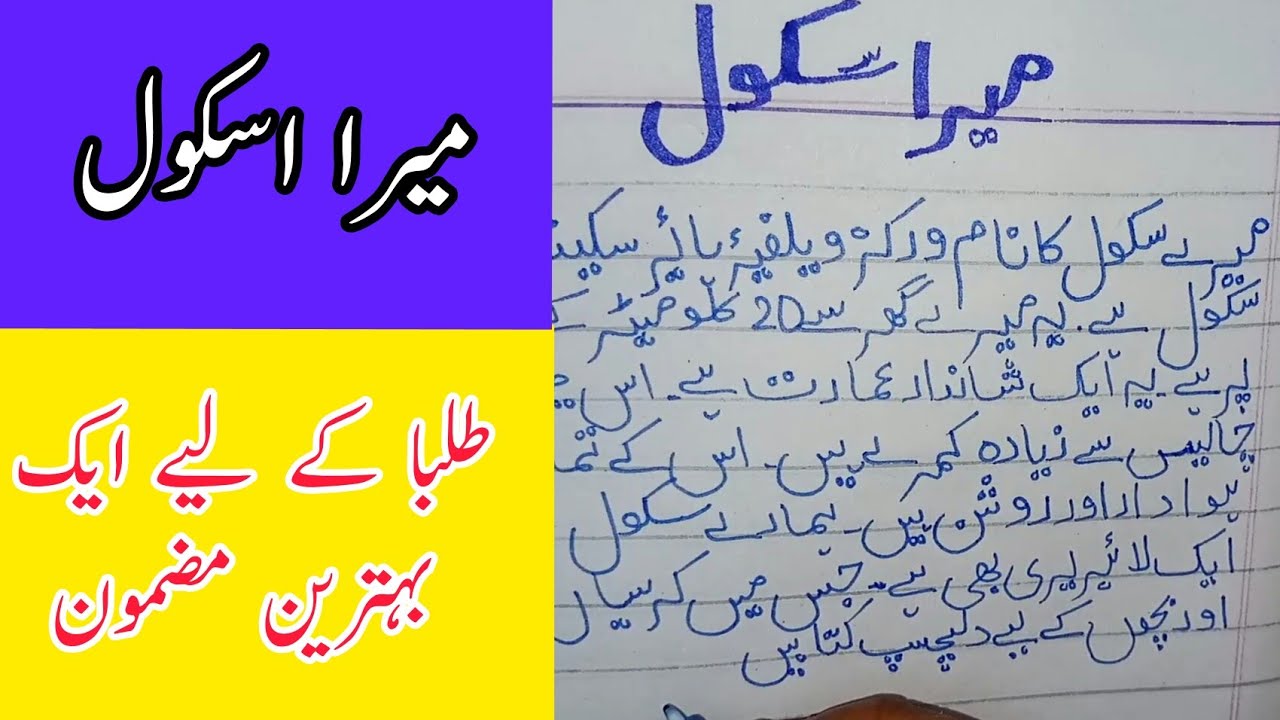 میرا اسکول
طلبا کے لیے ایک
بہترین مضمون
میرا سکول
میرے سکول کا نام ورکرز ویلفیئر ہائیر
سکول ہے۔ یہ میرے گھر سے 20 کلومیٹر
پر ہے۔ یہ ایک شاندار عمارت ہے۔ اس
چالیس سے زیادہ کمرے ہیں۔ اس کے
ہوادار اور روشن ہیں۔ ہمارے سکول
ایک لائبریری بھی ہے۔ جس میں
اور بچوں کے لیے دلچسپ کتابیں